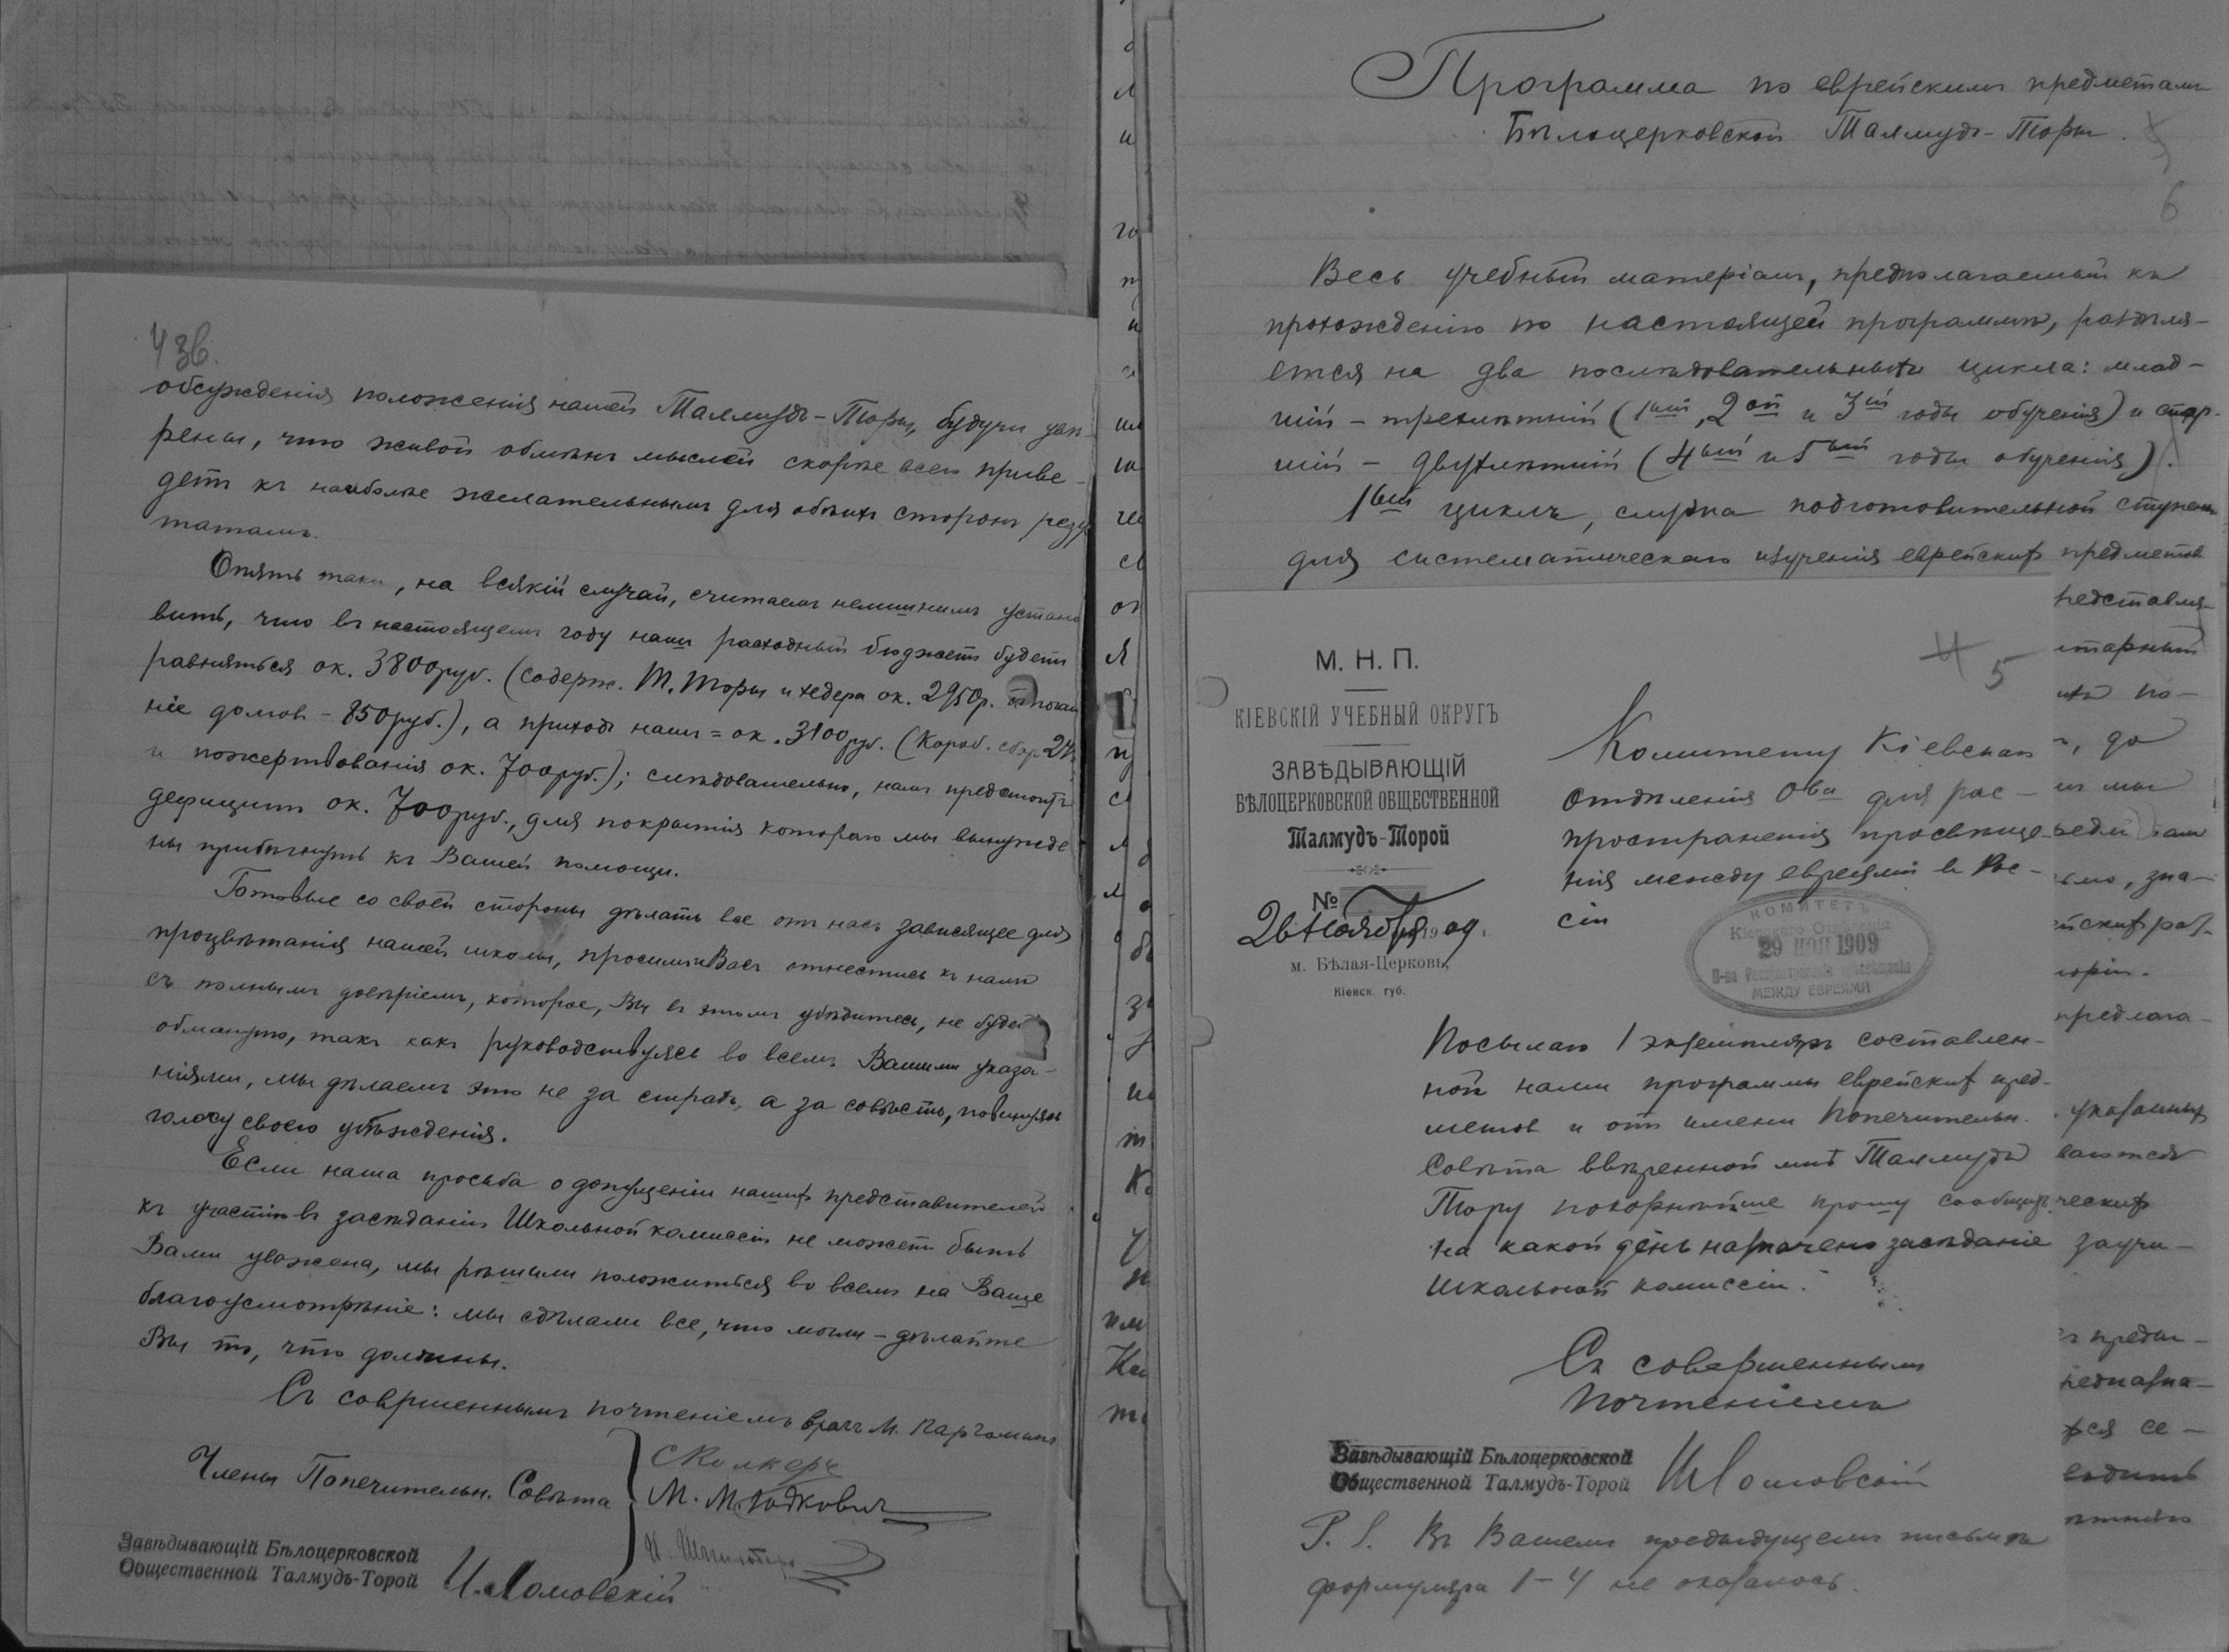 436.
обсужденія положенія нашей Талмудъ-Торы, будучи увѣ-
рены, что живой обмѣнъ мыслей скорѣе всего приве-
детъ къ наиболѣе желательнымъ для обѣихъ сторонъ резу
татамъ.
Опять таки, на всякій случай, считаемъ нелишнимъ устано
вить, что въ настоящемъ году нашъ расходный бюджетъ будетъ
равняться ок. 3800 руб. (содерж. Т. Торы и хедера ок. 2950 р.
ніе домовъ - 850 руб.), а приходъ нашъ = ок. 3100 руб. (Короб. сбор. 24
и пожертвованія ок. 700 руб.); слѣдовательно, намъ предстоитъ
дефицитъ ок. 700 руб., для покрытія котораго мы вынужде
ны прибѣгнуть къ Вашей помощи.
Готовые со своей стороны дѣлать все отъ насъ зависящее для
процвѣтанія нашей школы, просимъ Васъ отнестись къ намъ
съ полнымъ довѣріемъ, которое, Вы въ этомъ убѣдитесь, не будетъ
обмануто, такъ какъ руководствуясь во всемъ Вашими указа-
ніями, мы дѣлаемъ это не за страхъ, а за совѣсть, повинуясь
голосу своего убѣжденія.
Если наша просьба о допущеніи нашихъ представителей
къ участію въ засѣданіи Школьной комиссіи не можетъ быть
Вами уважена, мы рѣшили положиться во всемъ на Ваше
благоусмотрѣніе: мы сдѣлали все, что могли - дѣлайте
Вы то, что должны.
Съ совершеннымъ почтеніемъ врачъ М.
Члены Попечительн. Совѣта
М. М.
Завѣдывающій Бѣлоцерковской
Общественной Талмудъ-Торой
И. Ломовскій
Программа по еврейскимъ предметамъ
Бѣлоцерковской Талмудъ-Торы.
6
Весь учебный матеріалъ, предполагаемый къ
прохожденію по настоящей программѣ, раздѣля-
ется на два послѣдовательныхъ цикла: млад-
шій - трехлѣтній (1ый, 2ой и 3ій годы обученія) и стар-
шій - двухлѣтній (4ый и 5ый годы обученія).
1ый циклъ, служа подготовительной ступенью
для систематическаго изученія еврейскихъ предметовъ
5
М. Н. П.
КІЕВСКІЙ УЧЕБНЫЙ ОКРУГЪ
ЗАВѢДЫВАЮЩІЙ
БѢЛОЦЕРКОВСКОЙ ОБЩЕСТВЕННОЙ
Талмудъ-Торой
№
26 Ноября 1909 г.
м. Бѣлая-Церковь,
Кіевск. губ.
Комитету Кіевскаго
Отдѣленія О-ва для рас-
пространенія просвѣще-
нія между евреями въ Рос-
сіи
КОМИТЕТЪ
Кіевскаго Отдѣленія
29 НОЯ 1909
О-ва Распространенія просвѣщенія
МЕЖДУ ЕВРЕЯМИ
Посылаю 1 экземпляръ составлен-
ной нами программы еврейскихъ пред-
метовъ и отъ имени Попечительн.
Совѣта ввѣренной мнѣ Талмудъ
Тору покорнѣйше прошу сообщить
на какой день назначено засѣданіе
школьной комиссіи.
Съ совершеннымъ
почтеніемъ
Завѣдывающій Бѣлоцерковской
Общественной Талмудъ-Торой
И Ломовскій
P. S. Въ Вашемъ предыдущемъ письмѣ
формуляра 1-4 не оказалось.